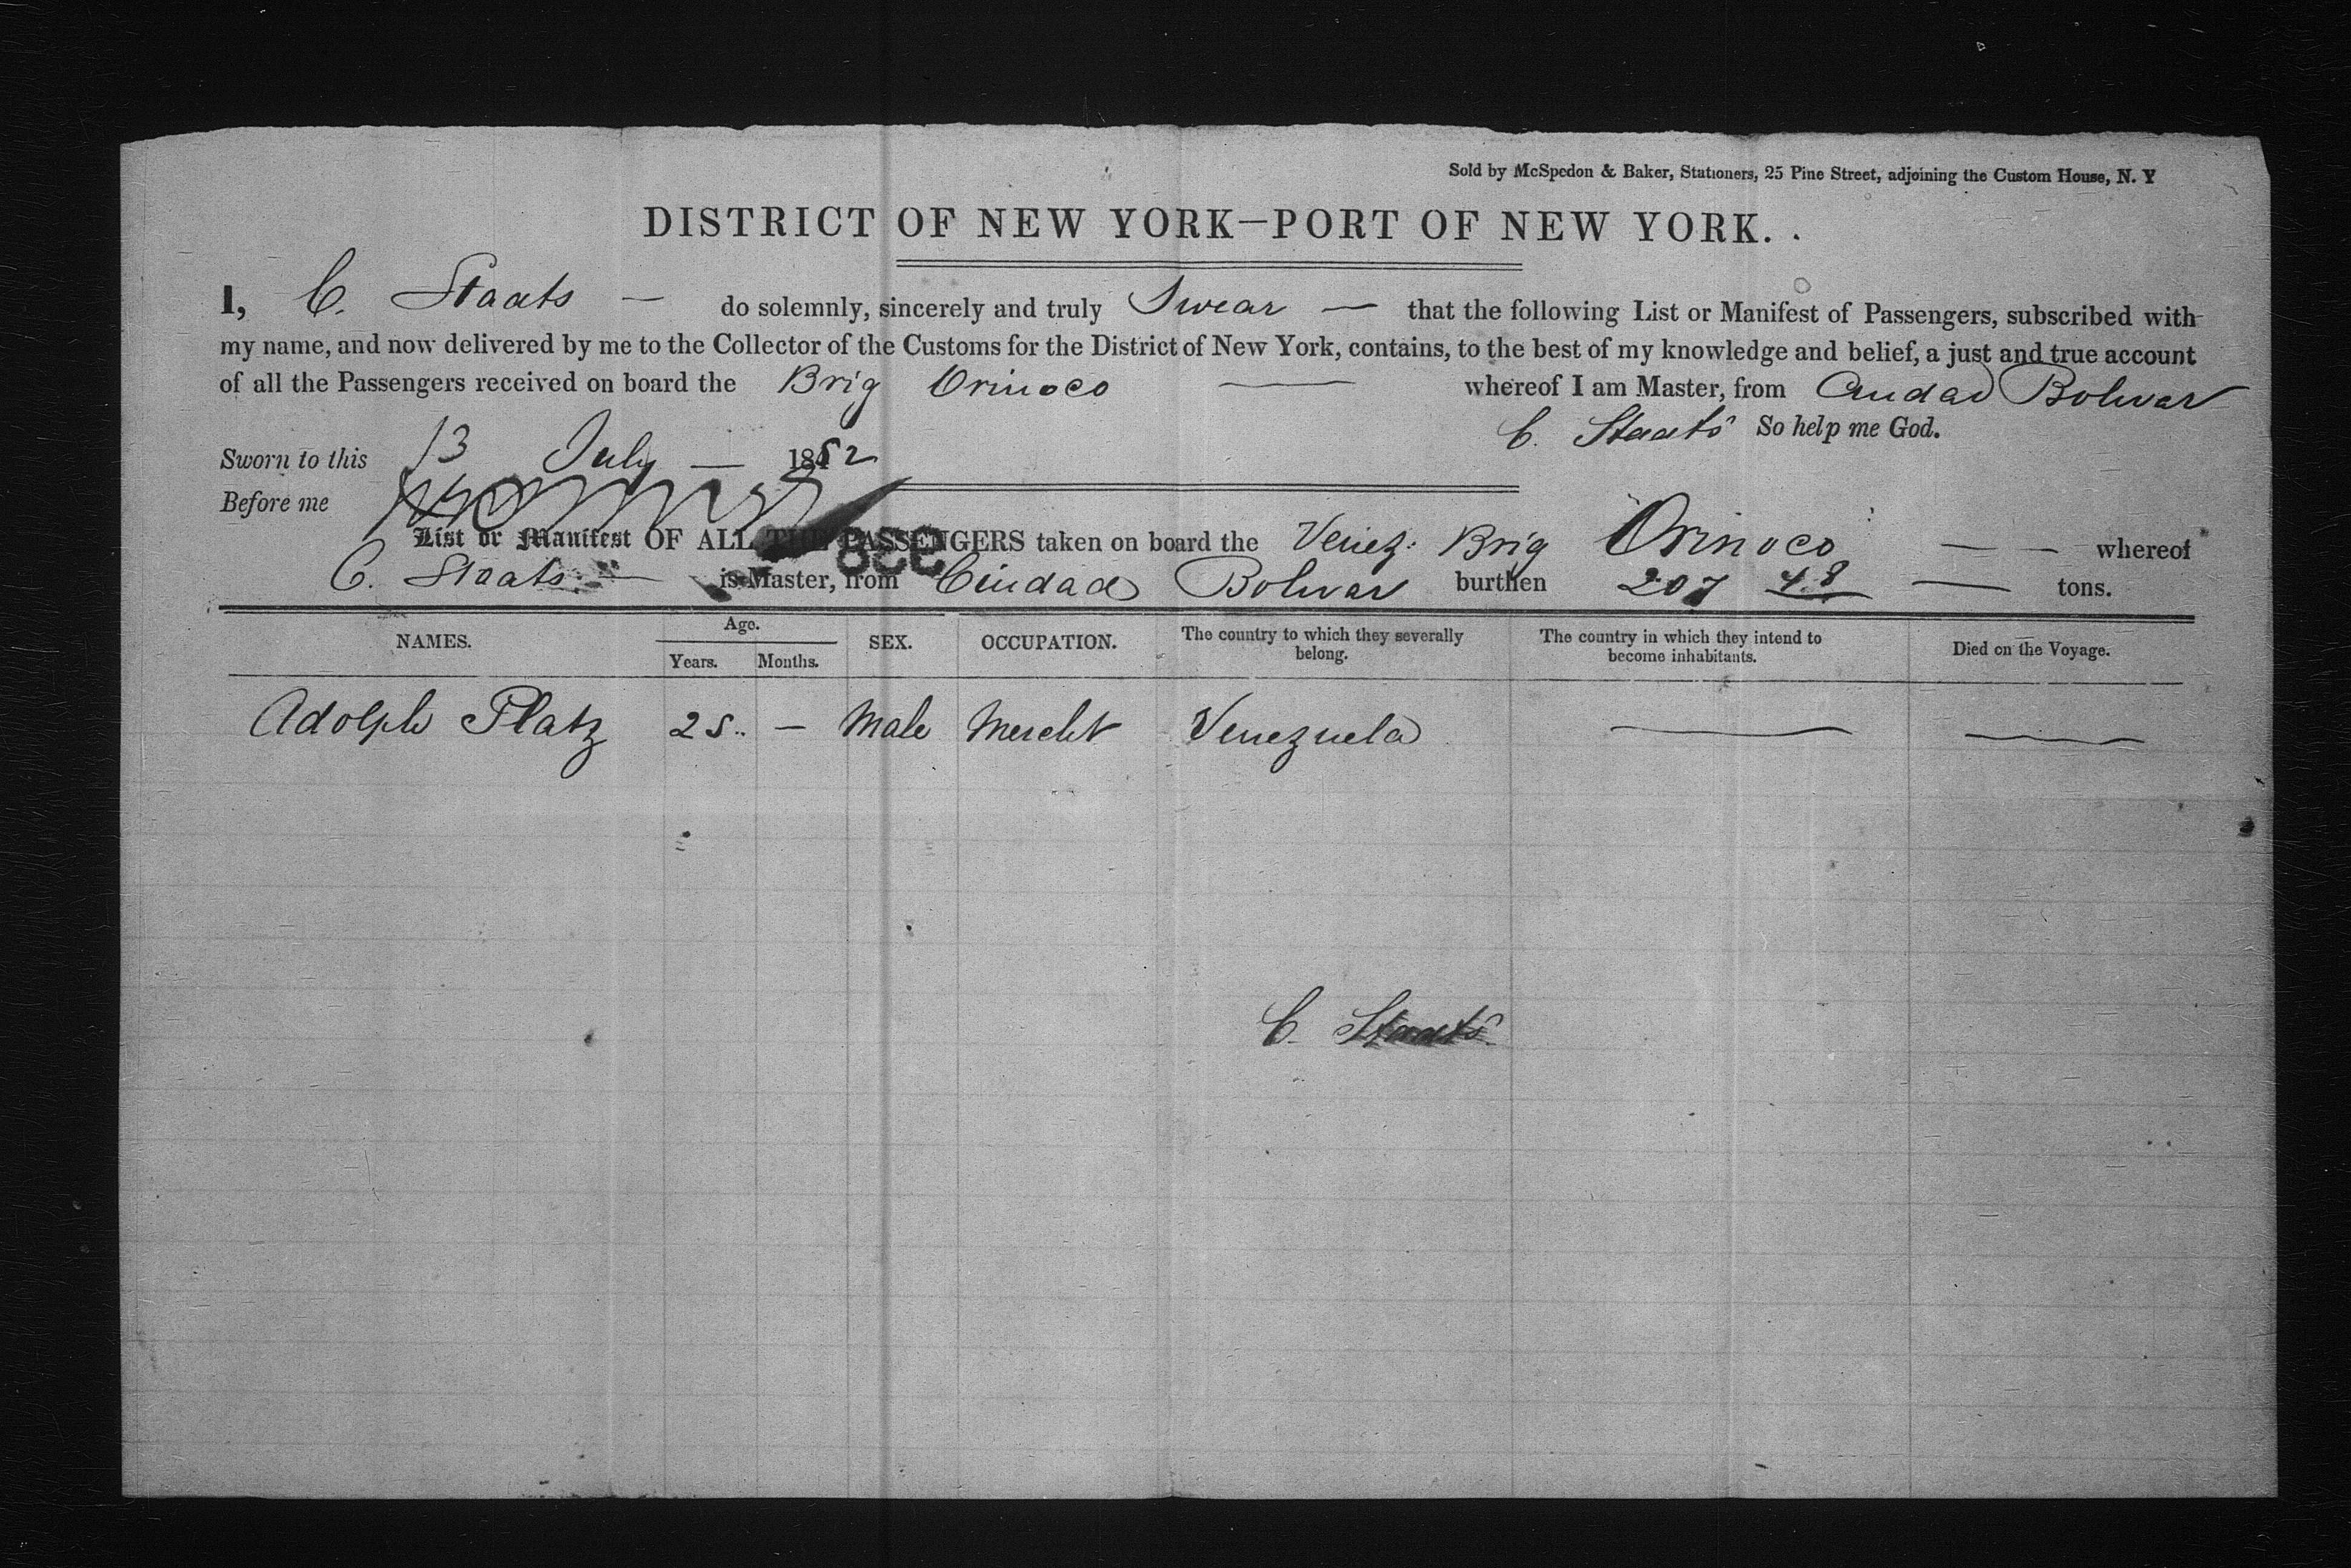 Sold by McSpedon & Baker, Stationers, 25 Pine Street, adjoining the Custom House, N. Y
DISTRICT OF NEW YORK—PORT OF NEW YORK.
I, C. Staats — do solemnly, sincerely and truly Swear — that the following List or Manifest of Passengers, subscribed with
my name, and now delivered by me to the Collector of the Customs for the District of New York, contains, to the best of my knowledge and belief, a just and true account
of all the Passengers received on board the Brig Orinoco — whereof I am Master, from Ciudad Bolivar
C. Staats So help me God.
Sworn to this 13 July — 1852
Before me
List or Manifest OF ALL THE PASSENGERS taken on board the Venez: Brig Orinoco — — whereof
C. Staats — is Master, from Ciudad Bolivar burthen 207 48 — tons.
NAMES. Age. Years. Months. SEX. OCCUPATION. The country to which they severally belong. The country in which they intend to become inhabitants. Died on the Voyage.
Adolph Platz 25 — Male Mercht Venezuela — —
C. Staats